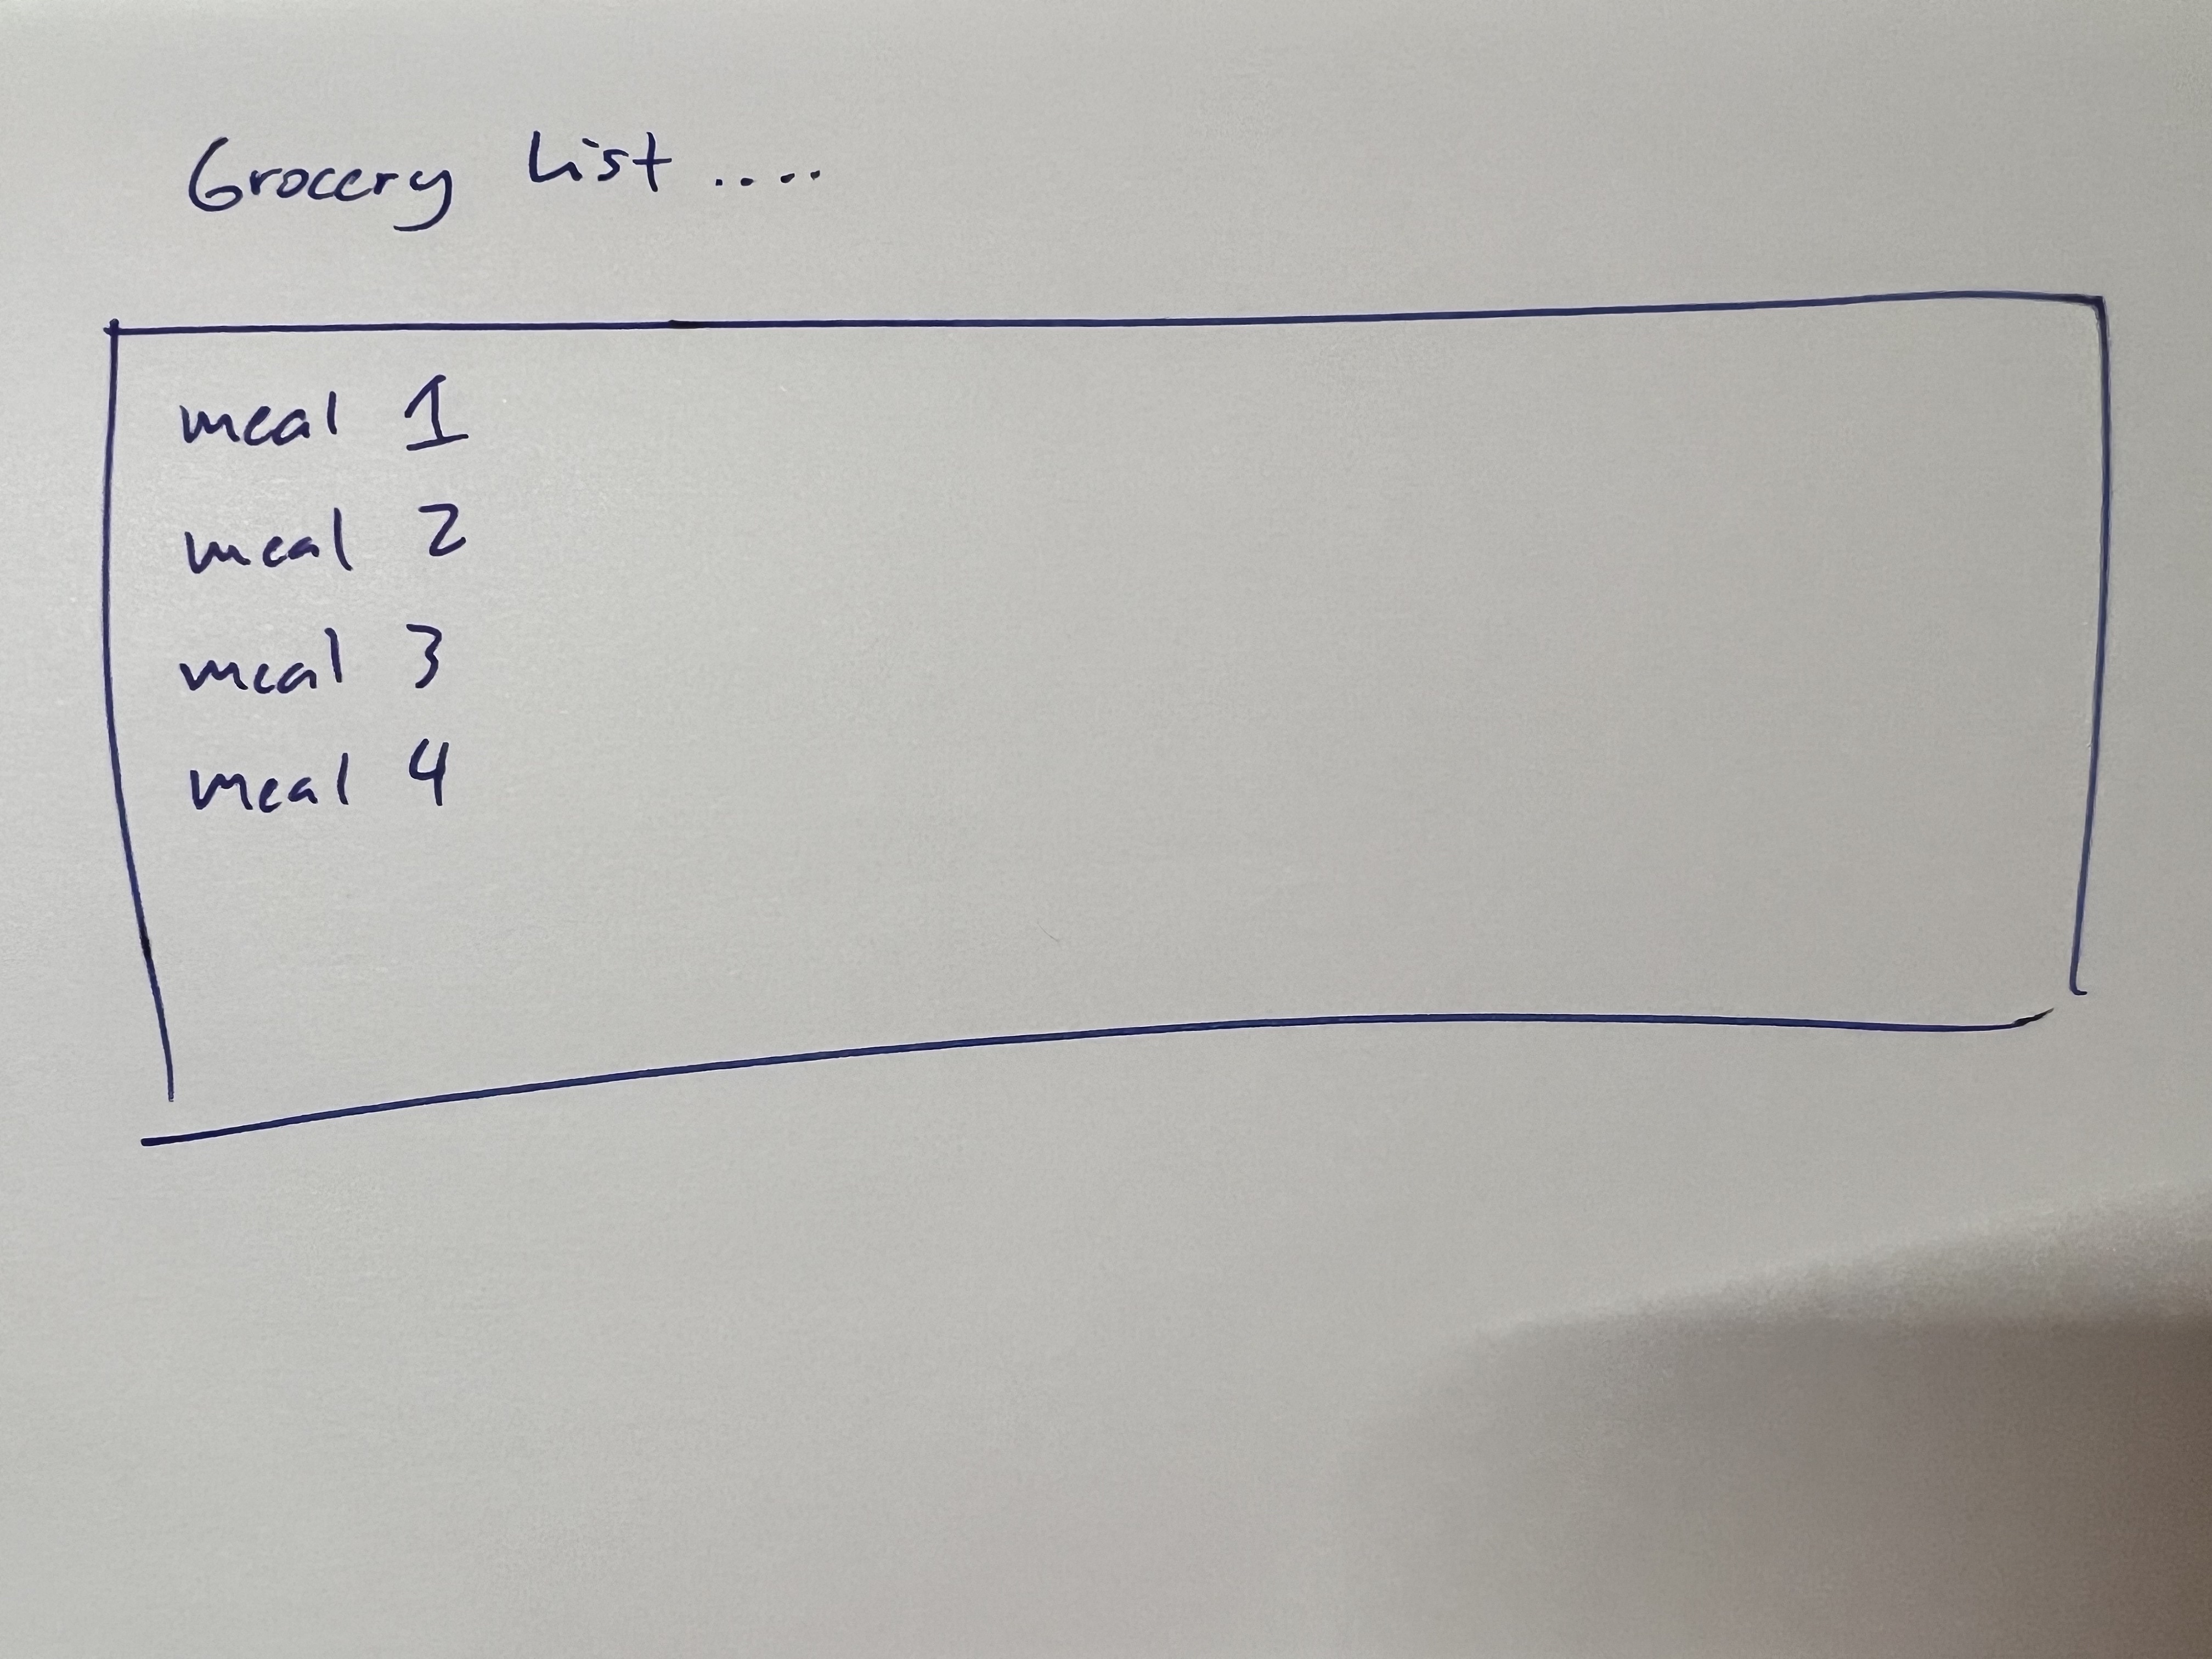 Grocery List ....
meal 1
meal 2
meal 3
meal 4